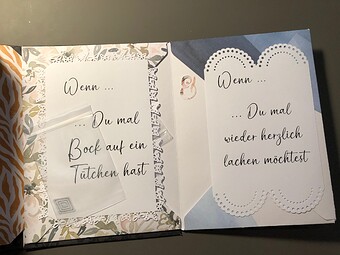 Wenn ...
... Du mal
Bock auf ein
Tütchen hast
Wenn ...
... Du mal
wieder herzlich
lachen möchtest